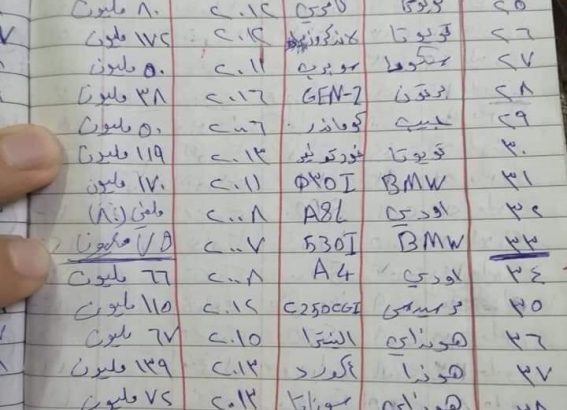 ٢٥ تويوتا كامري ٢٠١٢ ٨٠ مليون
٢٦ تويوتا لاندكروزر ٢٠١٢ ١٧٢ مليون
٢٧ ٢٠١١ ٥٠ مليون
٢٨ بروتون GEN-2 ٢٠١٦ ٣٨ مليون
٢٩ جيب كوماندر ٢٠٠٦ ٥٠ مليون
٣٠ تويوتا فورتونر ٢٠١٣ ١١٩ مليون
٣١ BMW ٥٣٠I ٢٠١١ ١٧٠ مليون
٣٢ اودي A8L ٢٠٠٨ ملغي (٨٢)
٣٣ BMW 530I ٢٠٠٧ ٧٥ مليون
٣٤ اودي A4 ٢٠٠٨ ٦٦ مليون
٣٥ مرسيدس C250CGI ٢٠١٢ ١١٥ مليون
٣٦ هونداي النترا ٢٠١٥ ٦٧ مليون
٣٧ هوندا اكورد ٢٠١٣ ١٣٩ مليون
٣٨ هونداي سوناتا ٢٠١٣ ٧٢ مليون